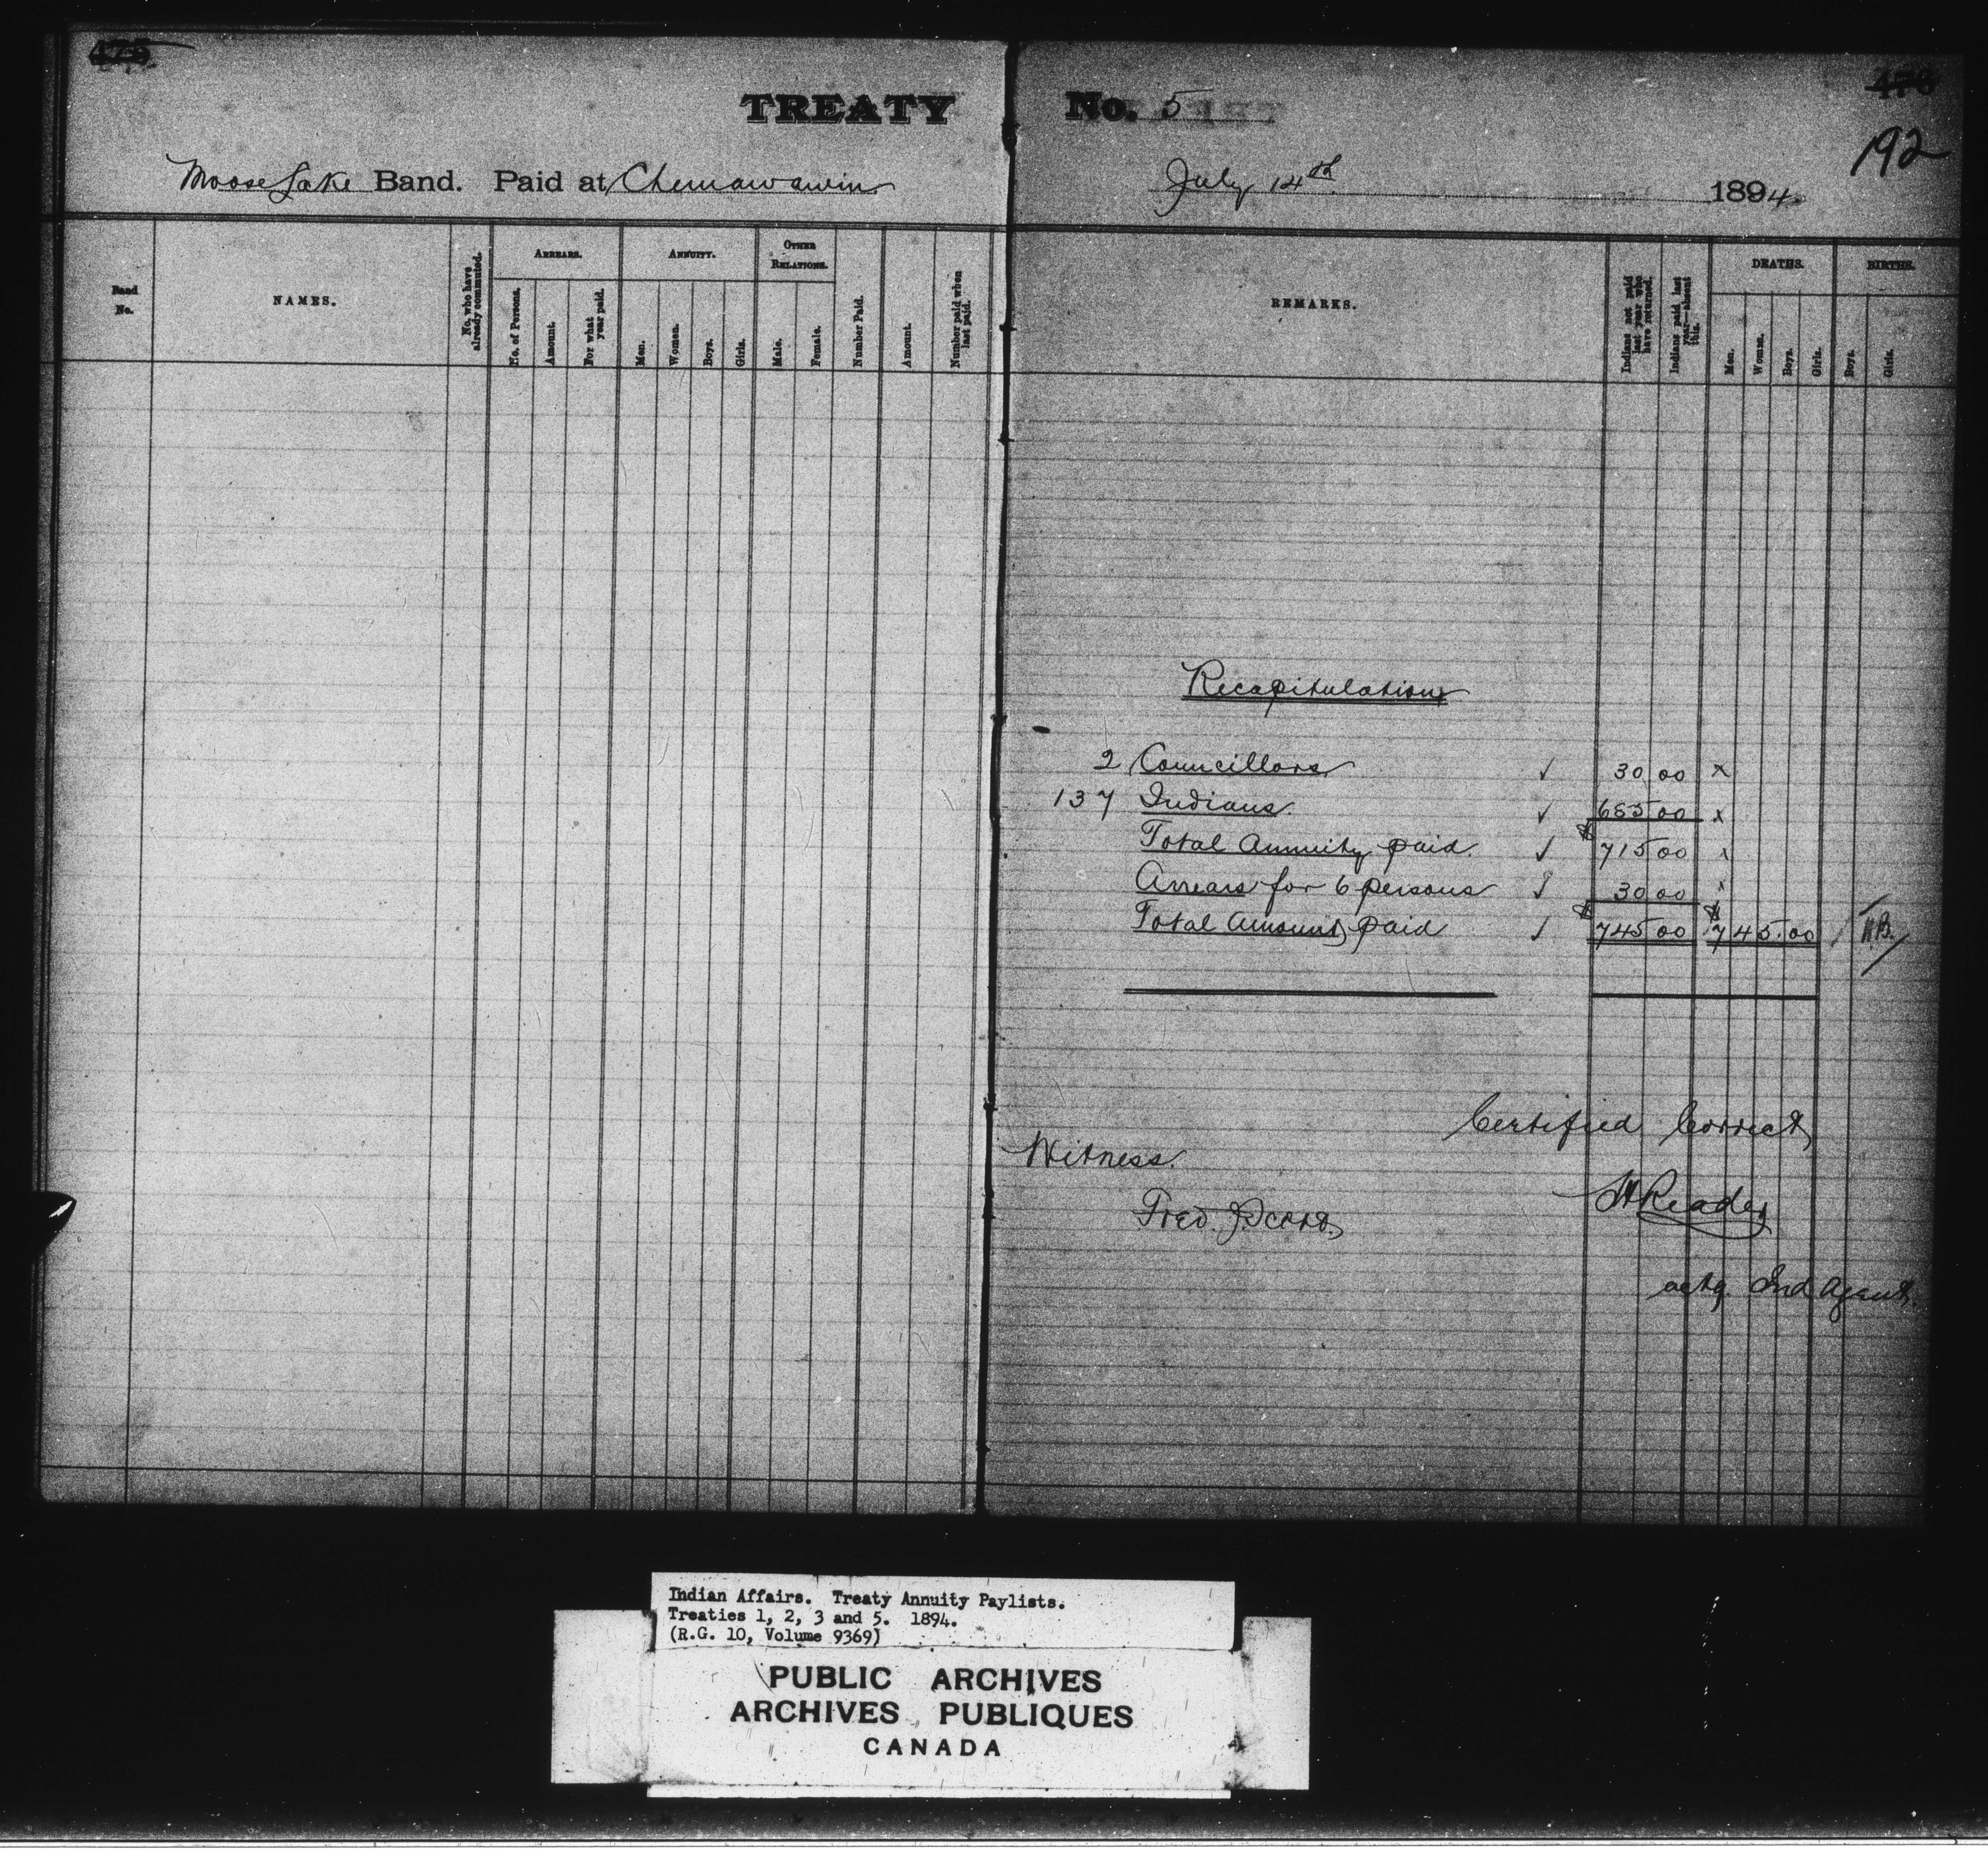 475
TREATY No. 5
476
192
Moose Lake Band. Paid at Chemawawin July 14th 1894
Band No.
NAMES.
No. who have already commuted.
ARREARS.
No. of Persons.
Amount.
For what year paid.
ANNUITY.
Men.
Women.
Boys.
Girls.
OTHER RELATIONS.
Male.
Female.
Number Paid.
Amount.
Number paid when last paid.
REMARKS.
Indians not paid last year who have returned.
Indians paid last year—absent this.
DEATHS.
Men.
Women.
Boys.
Girls.
BIRTHS.
Boys.
Girls.
Recapitulation
2 Councillors ✓ 30 00 x
137 Indians ✓ 685 00 x
Total Annuity paid. ✓ $ 715 00 x
Arrears for 6 persons ✓ 30 00 x
Total Amount paid ✓ $ 745 00 $ 745.00
Certified Correct
Witness.
Reader
Fred.
actg. Ind Agent.
Indian Affairs. Treaty Annuity Paylists.
Treaties 1, 2, 3 and 5. 1894.
(R.G. 10, Volume 9369)
PUBLIC ARCHIVES
ARCHIVES PUBLIQUES
CANADA